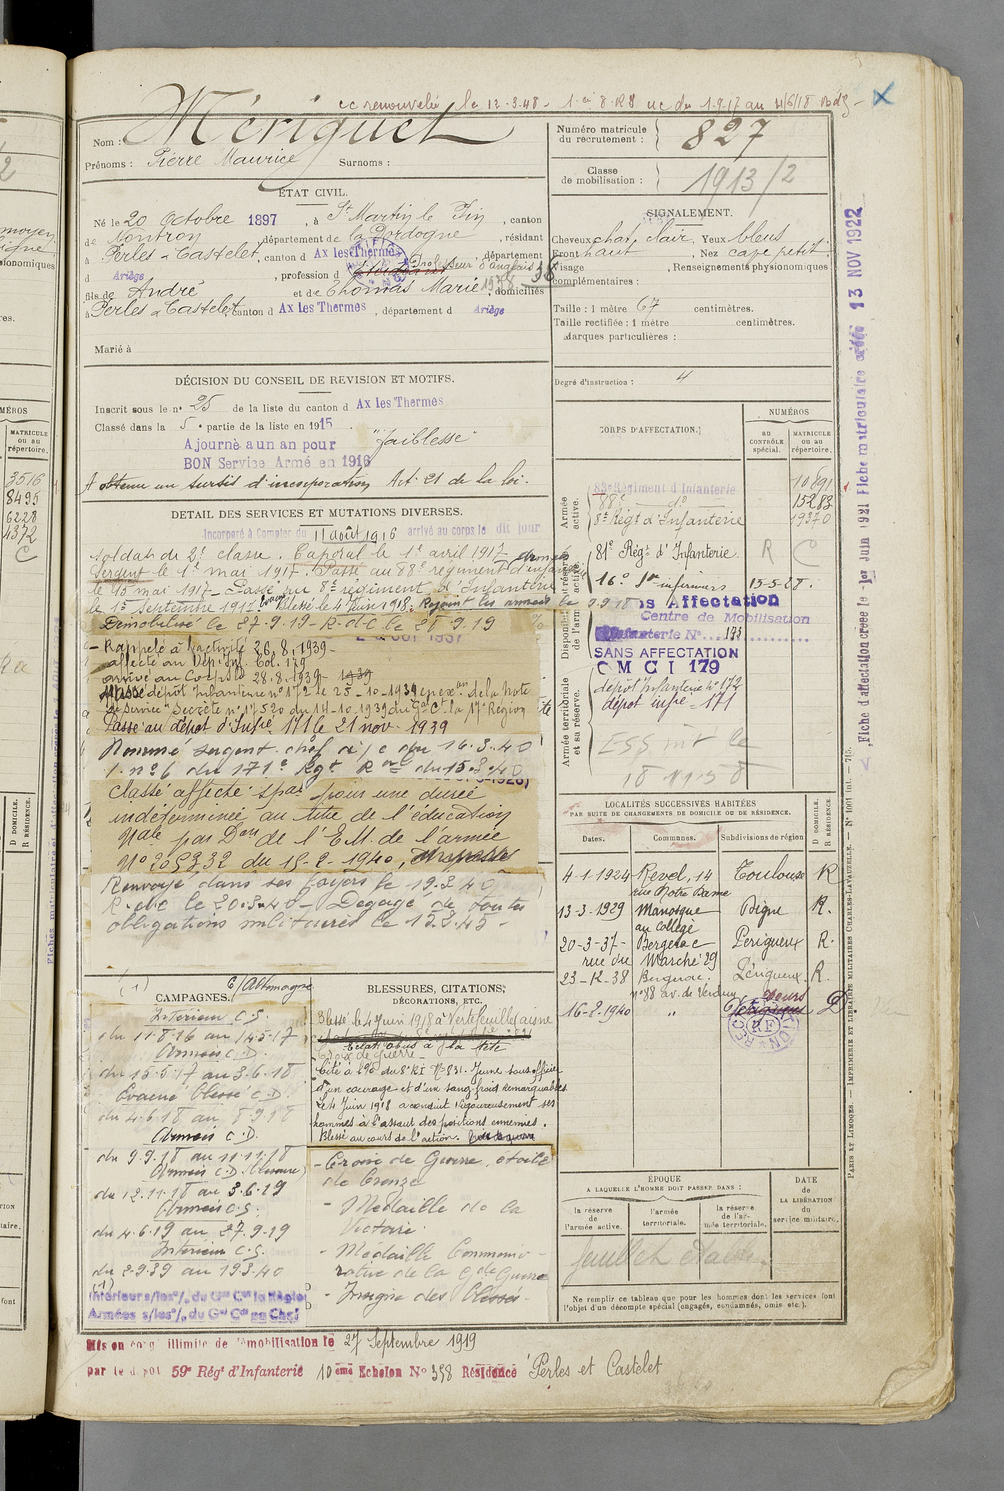 cc renouvelée le 12-3-48-
Nom : Mériguet
Prénoms : Pierre Maurice Surnoms :
Numéro matricule du recrutement : 827
Classe de mobilisation : 1913/2
ÉTAT CIVIL.
Né le 20 Octobre 1897, à St Martin le Pin, canton
de Nontron, département de la Dordogne, résidant
à Perles-Castelet, canton d Ax les Thermes, département
d Ariège, profession d Professeur d'anglais
fils de André et de Thomas Marie, domiciliés
à Perles-Castelet, canton d Ax les Thermes, département d Ariège
Marié à
SIGNALEMENT.
Cheveux chat. clair, Yeux bleus
Front haut, Nez cave petit
Visage , Renseignements physionomiques
complémentaires :
Taille : 1 mètre 67 centimètres.
Taille rectifiée : 1 mètre centimètres.
Marques particulières :
Degré d'instruction : 4
DÉCISION DU CONSEIL DE REVISION ET MOTIFS.
Inscrit sous le n° 25 de la liste du canton d Ax les Thermes
Classé dans la 5e partie de la liste en 1915.
Ajourné a un an pour "faiblesse"
BON Service Armé en 1916
A obtenu un sursis d'incorporation Art. 21 de la loi.
DÉTAIL DES SERVICES ET MUTATIONS DIVERSES.
Incorporé à Compter du 11 août 1916 arrivé au corps le dit jour
Soldat de 2e classe. Caporal le 1er avril 1917
Sergent le 1er mai 1917. Passé au 88e régiment d'infanterie
le 15 mai 1917- Passé au 8e régiment d'Infanterie
le 1er Septembre 1917. Blessé le 4 Juin 1918. Rejoint les armées le 9 9 18
Démobilisé le 27.9.19-R.d.C. le 28.9.19
- Rappelé à l'activité 26.8.1939-
affecté au Dép. Inf. Col. 179
arrivé au Corps le 28-8-1939-
Passé dépôt Infanterie n° 172 le 25-10-1939 en ex.on de la Note
de Service "Secrète" n° 17520 du 14-10-1939 du Gal Ct la 17e Région
Passé au dépôt d'Infie 171 le 21 nov. 1939
Nommé sergent-chef à/c du 16.3.40
classé affecté spal pour une durée
indéterminée au titre de l'éducation
Nale par Don de l'E.M. de l'armée
du 15-2-1940,
Renvoyé dans ses foyers le 19.3.40
R.d.c le 20.3.40 - Dégagé de toutes
obligations militaires le 15.8.45-
CORPS D'AFFECTATION.
NUMÉROS
au contrôle spécial.
MATRICULE ou au répertoire.
Armée active.
83e Régiment d'Infanterie 10891
88e d° 15283
8e Régt d'Infanterie 19370
Disponibilité et réserve de l'armée active.
81e Régt d'Infanterie. R C
16e Son infirmiers 15-5-28.
Sans Affectation
Centre de Mobilisation
Infanterie N°
SANS AFFECTATION
C M C I 179
Armée territoriale et sa réserve.
dépôt Infanterie n° 172
dépôt infie - 171
LOCALITÉS SUCCESSIVES HABITÉES
PAR SUITE DE CHANGEMENTS DE DOMICILE OU DE RÉSIDENCE.
Dates. Communes. Subdivisions de région D DOMICILE. R RÉSIDENCE.
4-1-1924 Revel, 14 rue Notre Dame Toulouse R
13-3-1929 Manosque au collège Digne R.
20-3-37- Bergerac rue du Marché 29 Périgueux R.
23-12-38 Bergerac n° 88 av. de Verdun Périgueux R.
16-2-1940 " D
(1) C/Allemagne
CAMPAGNES.
Intérieur C.S.
du 11-8-16 au 14-5-17
Armées C.D.
du 15-5-17 au 3.6.18
Évacué blessé C.D.
du 4.6.18 au 8 9 18
Armées C.D.
du 9.9.18 au 11.11.18
Armées C.D.
du 12.11.18 au 3.6.19
Armées C.S.
du 4.6.19 au 27.9.19
Intérieur C.S.
du 2-9-39 au 19 3.40
BLESSURES, CITATIONS,
DÉCORATIONS, ETC.
Blessé le 4 juin 1918 à Vertefeuille aisne
Éclat obus à la tête
Croix de guerre -
Cité à l'O. du 8e RI N° 831. Jeune sous officier
d'un courage et d'un sang-froid remarquables.
Le 4 Juin 1918 a conduit vigoureusement ses
hommes à l'assaut des positions ennemies.
Blessé au cours de l'action.
- Croix de Guerre, étoile
de bronze
- Médaille de la
Victoire.
- Médaille Commémo-
rative de la Gde Guerre
- Insigne des Blessés
ÉPOQUE
A LAQUELLE L'HOMME DOIT PASSER DANS :
la réserve de l'armée active.
l'armée territoriale.
la réserve de l'armée territoriale.
DATE de LA LIBÉRATION du service militaire.
Ne remplir ce tableau que pour les hommes dont les services font
l'objet d'un décompte spécial (engagés, condamnés, omis etc.).
Mis en congé illimité de démobilisation le 27 Septembre 1919
par le dépôt 59e Régt d'Infanterie 10ème Echelon N° 358 Résidence Perles et Castelet
Fiche d'affectation créée le 1er Juin 1921 Fiche matriculaire créée 13 NOV 1922
PARIS ET LIMOGES. — IMPRIMERIE ET LIBRAIRIE MILITAIRES CHARLES-LAVAUZELLE.